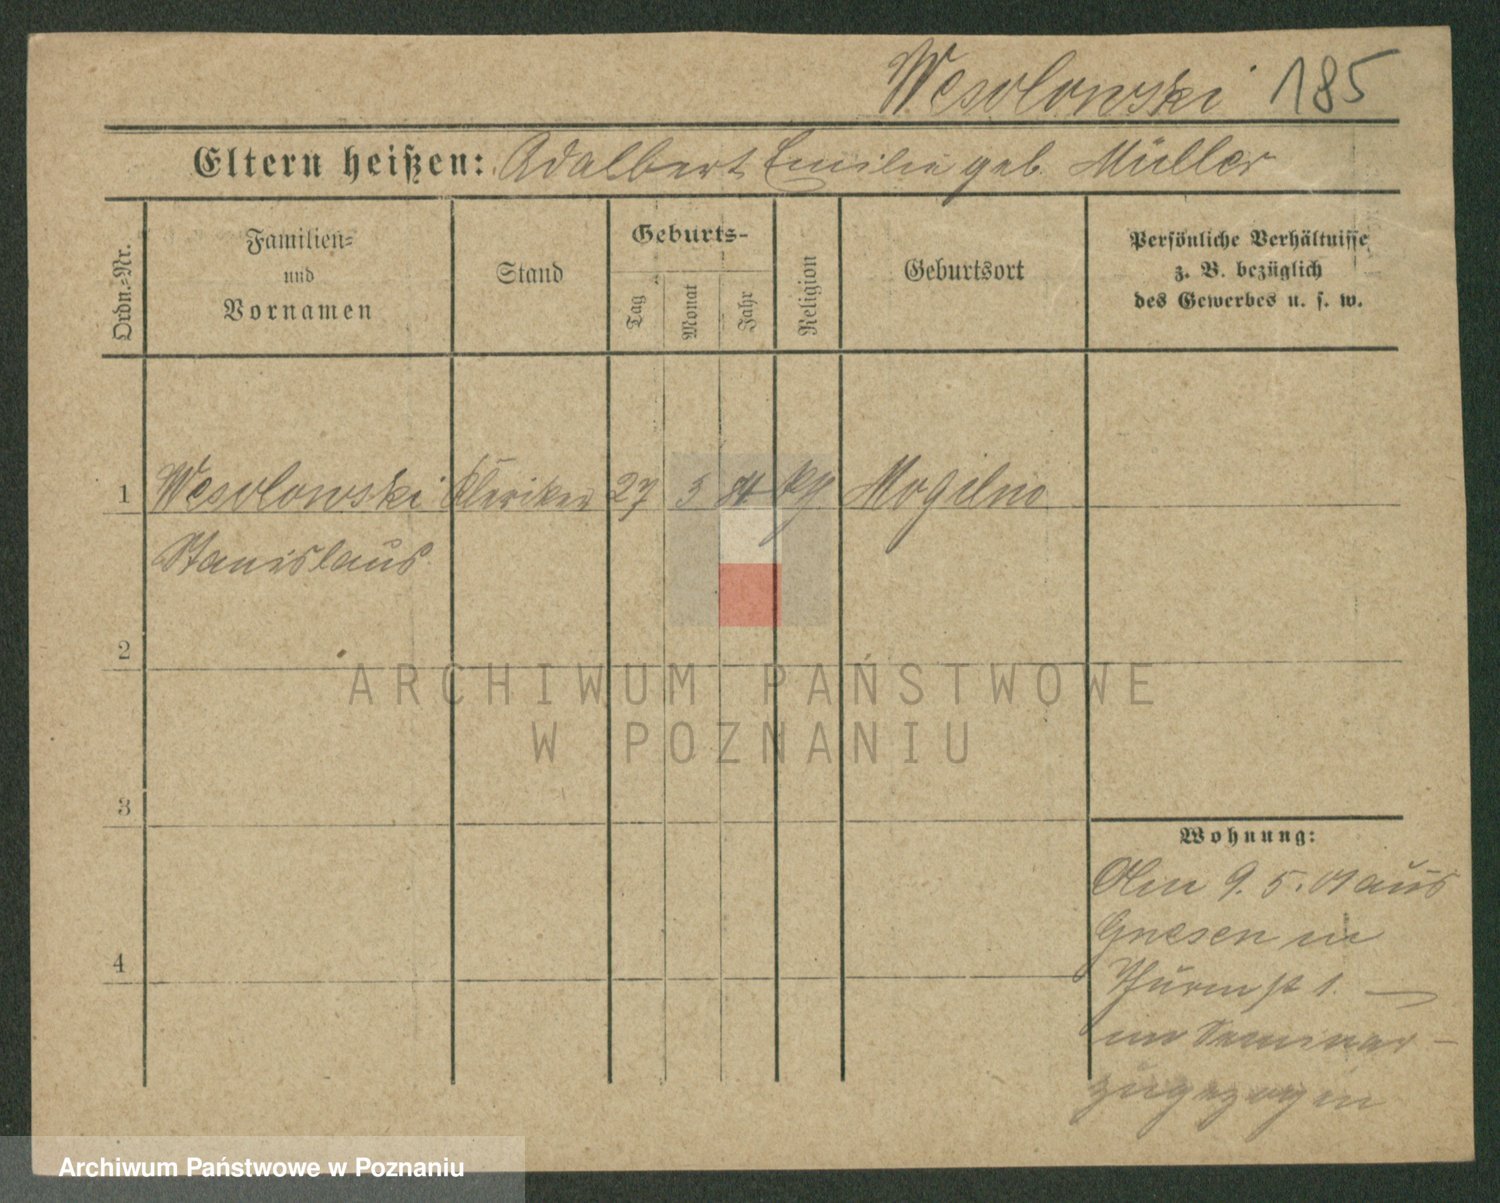 Wesolowski 185
Eltern heißen: Adalbert Emilie geb. Müller
Ordn.-Nr.
Familien-
und
Vornamen
Stand
Geburts-
Tag
Monat
Jahr
Religion
Geburtsort
Persönliche Verhältnisse
z. B. bezüglich
des Gewerbes u. s. w.
1 Wesolowski Kleriker 27 5 84 Mogilno
Stanislaus
2
3
4
Wohnung:
Am 9. 5. 01 aus
Gnesen in
Thurmst 1. —
im Seminar —
zugezogen
ARCHIWUM PAŃSTWOWE
W POZNANIU
Archiwum Państwowe w Poznaniu